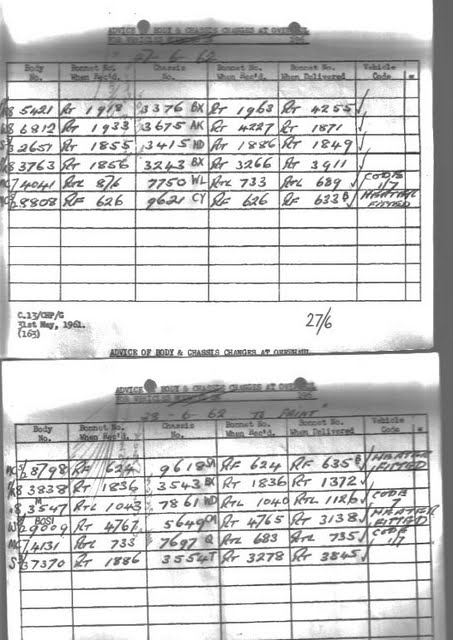 ADVICE OF BODY & CHASSIS CHANGES AT OVERHAUL
FOR VEHICLES 196
27-6-62
Body No. Bonnet No. When Rec'd. Chassis No. Bonnet No. When Rec'd. Bonnet No. When Delivered Vehicle Code *
5421 RT 1918 3376 BX RT 1963 RT 4255 ✓
6812 RT 1933 3675 AK RT 4227 RT 1871 ✓
2651 RT 1855 3415 HD RT 1886 RT 1849 ✓
3763 RT 1856 3243 BX RT 3266 RT 3911 ✓
4041 RTL 876 7750 WL RTL 733 RTL 689 ✓ CODE 1/7
8808 RF 626 9621 CY RF 626 RF 633 B ✓ HEATER FITTED
C.13/CHP/G
31st May, 1961.
(163)
27/6
ADVICE OF BODY & CHASSIS CHANGES AT OVERHAUL
ADVICE OF BODY & CHASSIS CHANGES AT OVERHAUL
FOR VEHICLES 196
28-6-62 "TO PAINT"
Body No. Bonnet No. When Rec'd. Chassis No. Bonnet No. When Rec'd. Bonnet No. When Delivered Vehicle Code *
8798 RF 624 9618 RF 624 RF 635 B ✓ HEATER FITTED
3838 RT 1836 3543 BX RT 1836 RT 1372 ✓
3547 RTL 1043 7861 WD RTL 1040 RTL 1126 ✓ CODE 7
RT 4767 5649 RT 4765 RT 3138 ✓ HEATER FITTED
4131 RTL 733 7697 Q RTL 683 RTL 735 ✓ CODE 1/7
7370 RT 1886 3554 T RT 3278 RT 3845 ✓